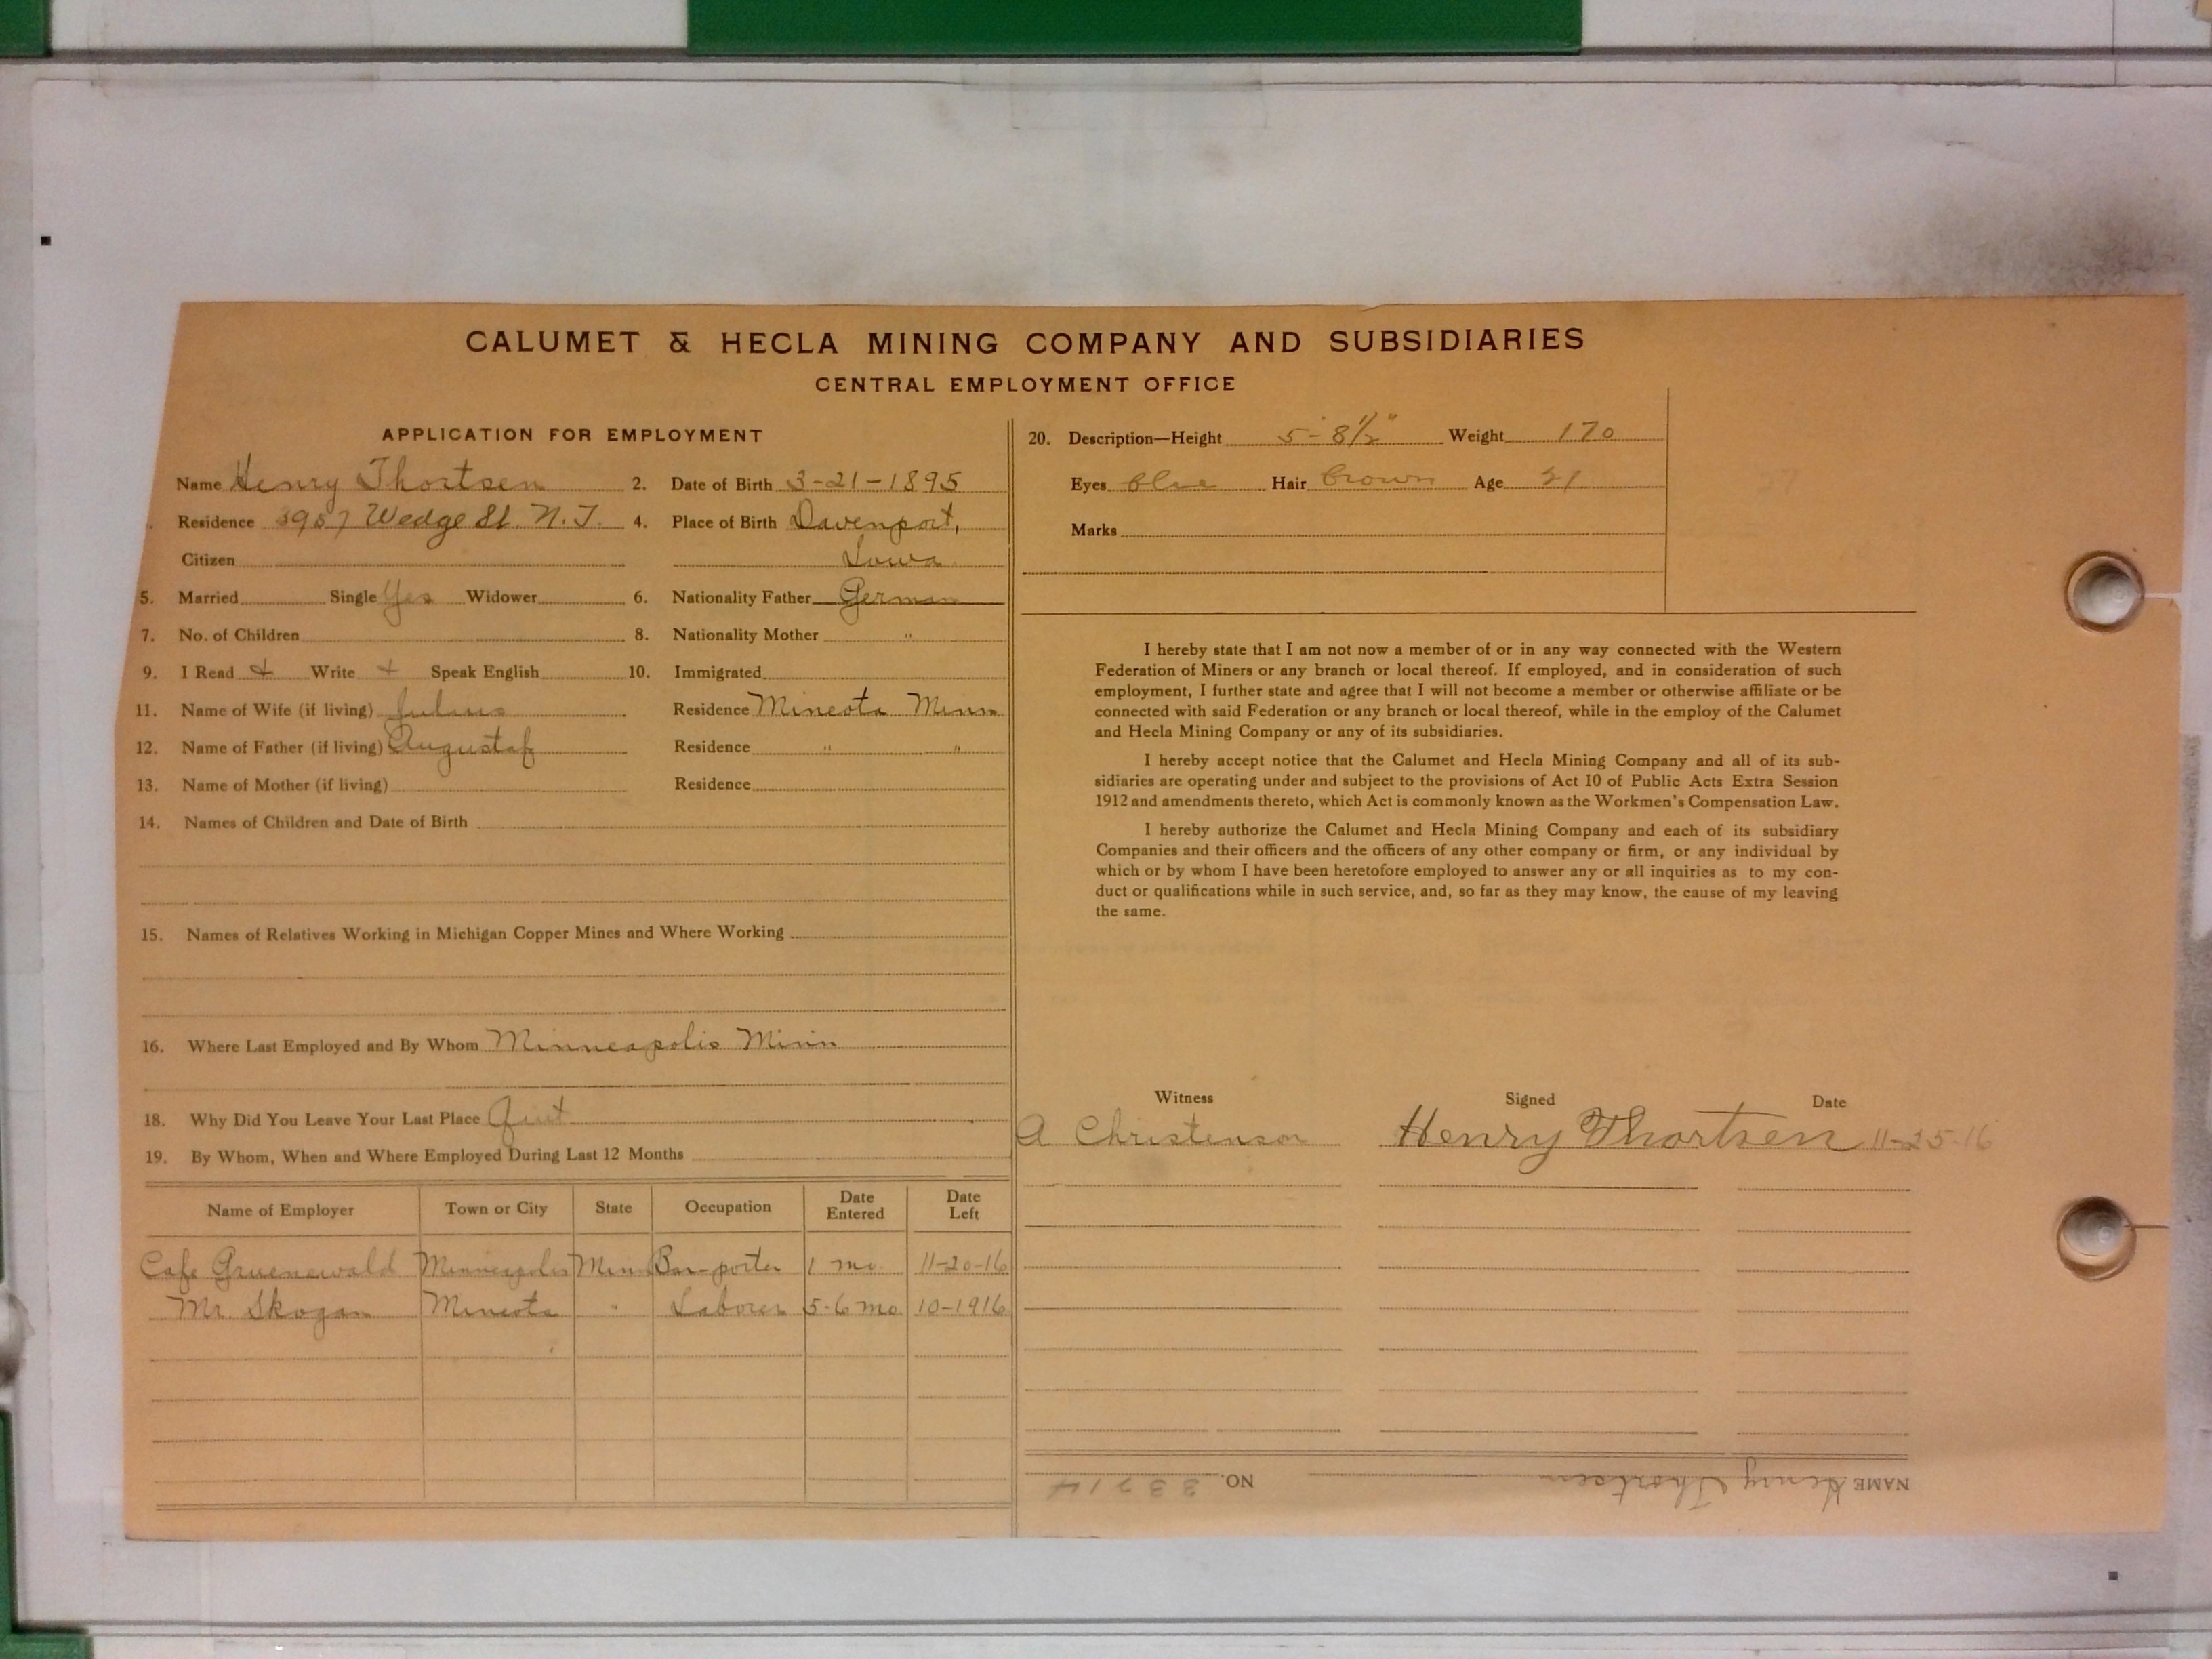 CALUMET & HECLA MINING COMPANY AND SUBSIDIARIES
CENTRAL EMPLOYMENT OFFICE
APPLICATION FOR EMPLOYMENT
Name Henry Thortsen
2. Date of Birth 3-21-1895
Residence 3957 Wedge St. N.J.
4. Place of Birth Davenport,
Citizen
Iowa
5. Married Single Yes Widower
6. Nationality Father German
7. No. of Children
8. Nationality Mother "
9. I Read + Write + Speak English
10. Immigrated
11. Name of Wife (if living)
Residence Mineota Minn
12. Name of Father (if living) Augustaf
Residence " "
13. Name of Mother (if living)
Residence
14. Names of Children and Date of Birth
15. Names of Relatives Working in Michigan Copper Mines and Where Working
16. Where Last Employed and By Whom Minneapolis Minn
18. Why Did You Leave Your Last Place Quit
19. By Whom, When and Where Employed During Last 12 Months
Name of Employer Town or City State Occupation Date Entered Date Left
Cafe Gruenewald Minneapolis Minn Bar-porter 1 mo. 11-20-16
Mr. Skogan Mineota " Laborer 5-6 mo. 10-1916
20. Description—Height 5'-8½" Weight 170
Eyes blue Hair brown Age 21
Marks
I hereby state that I am not now a member of or in any way connected with the Western
Federation of Miners or any branch or local thereof. If employed, and in consideration of such
employment, I further state and agree that I will not become a member or otherwise affiliate or be
connected with said Federation or any branch or local thereof, while in the employ of the Calumet
and Hecla Mining Company or any of its subsidiaries.
I hereby accept notice that the Calumet and Hecla Mining Company and all of its sub-
sidiaries are operating under and subject to the provisions of Act 10 of Public Acts Extra Session
1912 and amendments thereto, which Act is commonly known as the Workmen's Compensation Law.
I hereby authorize the Calumet and Hecla Mining Company and each of its subsidiary
Companies and their officers and the officers of any other company or firm, or any individual by
which or by whom I have been heretofore employed to answer any or all inquiries as to my con-
duct or qualifications while in such service, and, so far as they may know, the cause of my leaving
the same.
Witness Signed Date
A Christenson Henry Thortsen 11-25-16
NAME Henry Thortsen NO. 33214